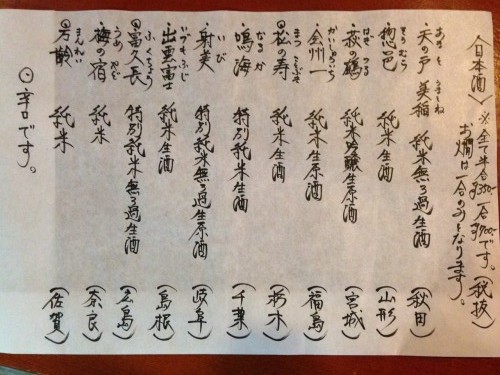 〈日本酒〉 ※全て半合350- 一合700-です。(税抜)
お燗は一合のみとなります。
あまのと うましね
天の戸 美稲 純米無ろ過生酒 (秋田)
そうむら
惣邑 純米生酒 (山形)
はぎつる
萩の鶴 純米吟醸生原酒 (宮城)
かいしゅういち
会州一 純米生原酒 (福島)
まつことぶき
⦿松の寿 純米生酒 (栃木)
なるか
鳴海 特別純米生酒 (千葉)
いび
射美 特別純米無ろ過生原酒 (岐阜)
いづもふじ
出雲富士 純米生酒 (島根)
ふくちょう
⦿富久長 特別純米無ろ過生酒 (広島)
うめ やど
梅の宿 純米 (奈良)
まんれい
⦿万齢 純米 (佐賀)
⦿辛口です。